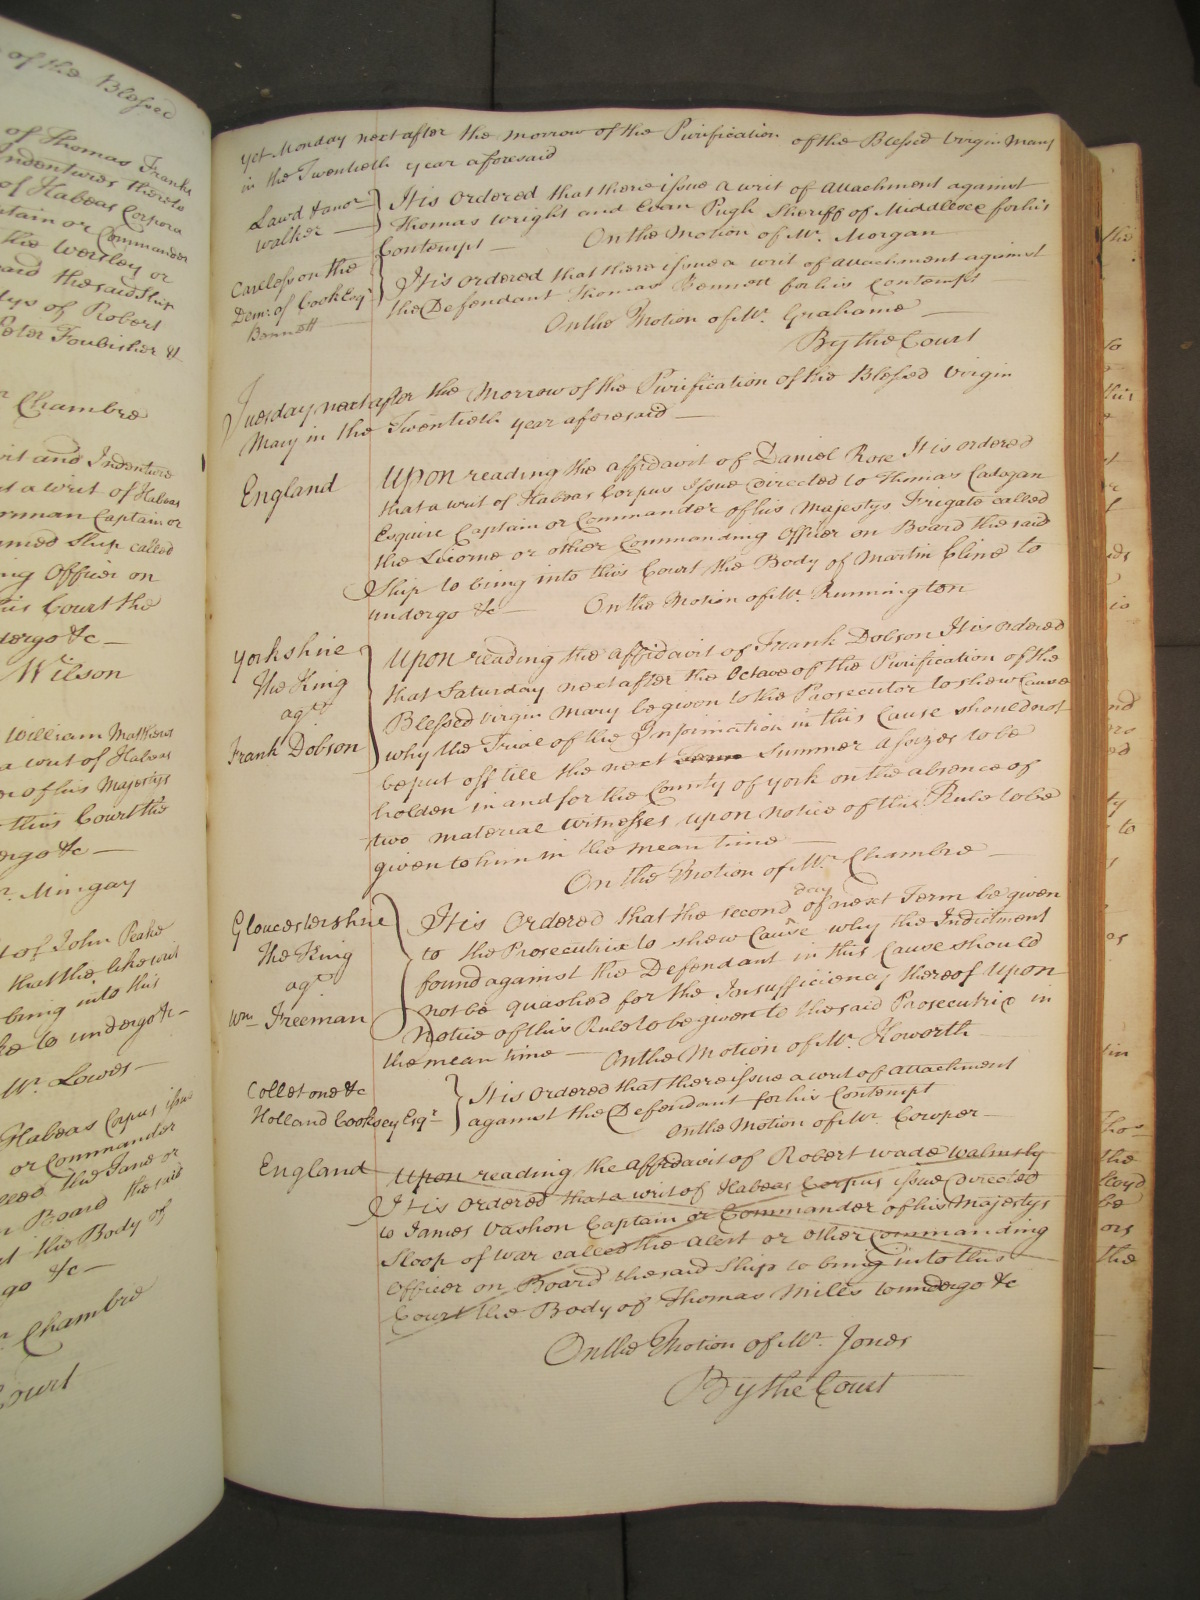 of the Blessed
of Thomas Franks
Indentures thereto
of Habeas Corpora
Captain or Commander
the Wortley or
said the said Ship
Bodys of Robert
Peter Foubisher &
Chambre
and Indenture
a writ of Habeas
Captain or
named Ship called
Officer on
this Court the
undergo &c —
Wilson
William Matthews
a writ of Habeas
of his Majestys
this Court the
&c —
Mr. Mingay
of John Peake
that the like writ
bring into this
to undergo &c —
Mr. Lowes —
Habeas Corpus issue
or Commander
called the Jane or
on Board the said
the Body of
&c —
Chambre
Court
Yet Monday next after the morrow of the Purification of the Blessed Virgin Mary
in the Twentieth year aforesaid
Law'd & anor
Walker —
It is ordered that there issue a writ of attachment against
Thomas Wright and Evan Pugh Sheriff of Middlesex for his
Contempt — On the Motion of Mr. Morgan
Careless on the
Dem. of Cook Esqr
Bennett
It is ordered that there issue a writ of attachment against
the Defendant Thomas Bennett for his Contempt
On the Motion of Mr. Grahame —
By the Court
Tuesday next after the Morrow of the Purification of the Blessed Virgin
Mary in the Twentieth year aforesaid —
England
Upon reading the affidavit of Daniel Rose It is ordered
that a writ of Habeas Corpus Issue Directed to Thomas Cadogan
Esquire Captain or Commander of his Majestys Frigate called
the Licorne or other Commanding Officer on Board the said
Ship to bring into this Court the Body of Martin Cline to
undergo &c — On the Motion of Mr. Runnington
Yorkshire
The King
agst
Frank Dobson
Upon reading the affidavit of Frank Dobson It is ordered
that Saturday next after the Octave of the Purification of the
Blessed Virgin Mary be given to the Prosecutor to shew Cause
why the Trial of the Information in this Cause should not
be put off till the next Term Summer Assizes to be
holden in and for the County of York on the absence of
two material Witnesses upon notice of this Rule to be
given to him in the mean time —
On the Motion of Mr. Chambre —
Gloucestershire
The King
agst
Wm Freeman
It is Ordered that the second day of next Term be given
to the Prosecutrix to shew Cause why the Indictment
found against the Defendant in this Cause should
not be quashed for the Insufficiency thereof Upon
Notice of this Rule to be given to the said Prosecutrix in
the mean time — On the Motion of Mr. Howorth
Collet one &c
Holland Cooksey Esqr
It is ordered that there issue a writ of attachment
against the Defendant for his Contempt
On the Motion of Mr. Cowper —
England
Upon reading the affidavit of Robert Wade Walmsly
It is ordered that a writ of Habeas Corpus issue Directed
to James Vashon Captain or Commander of his Majestys
Sloop of War called the Alert or other Commanding
Officer on Board the said Ship to bring into this
Court the Body of Thomas Mills to undergo &c
On the Motion of Mr. Jones
By the Court